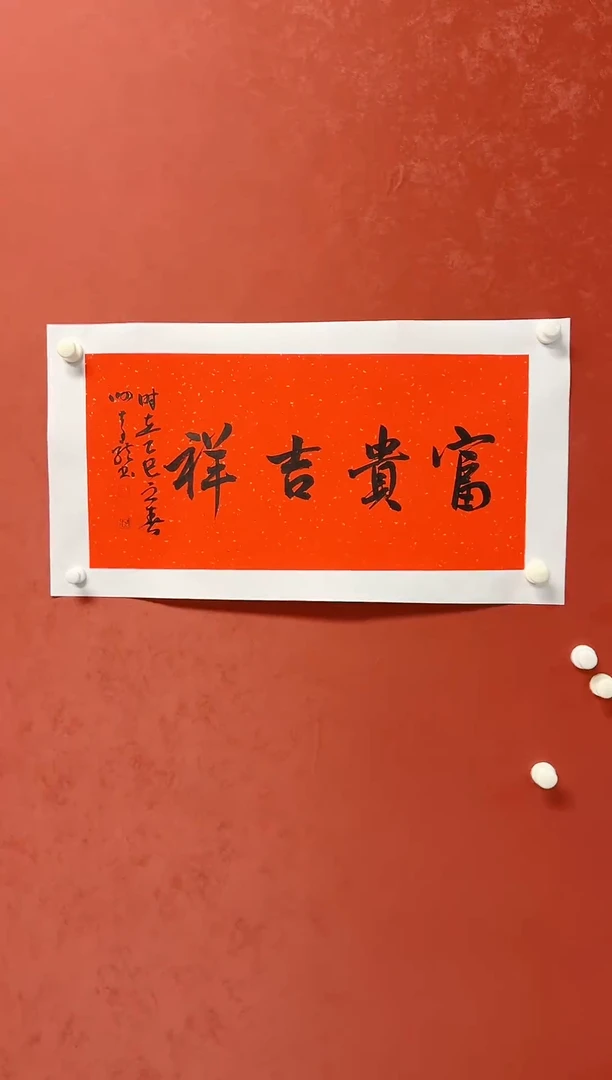 富貴吉祥
时在乙巳之春